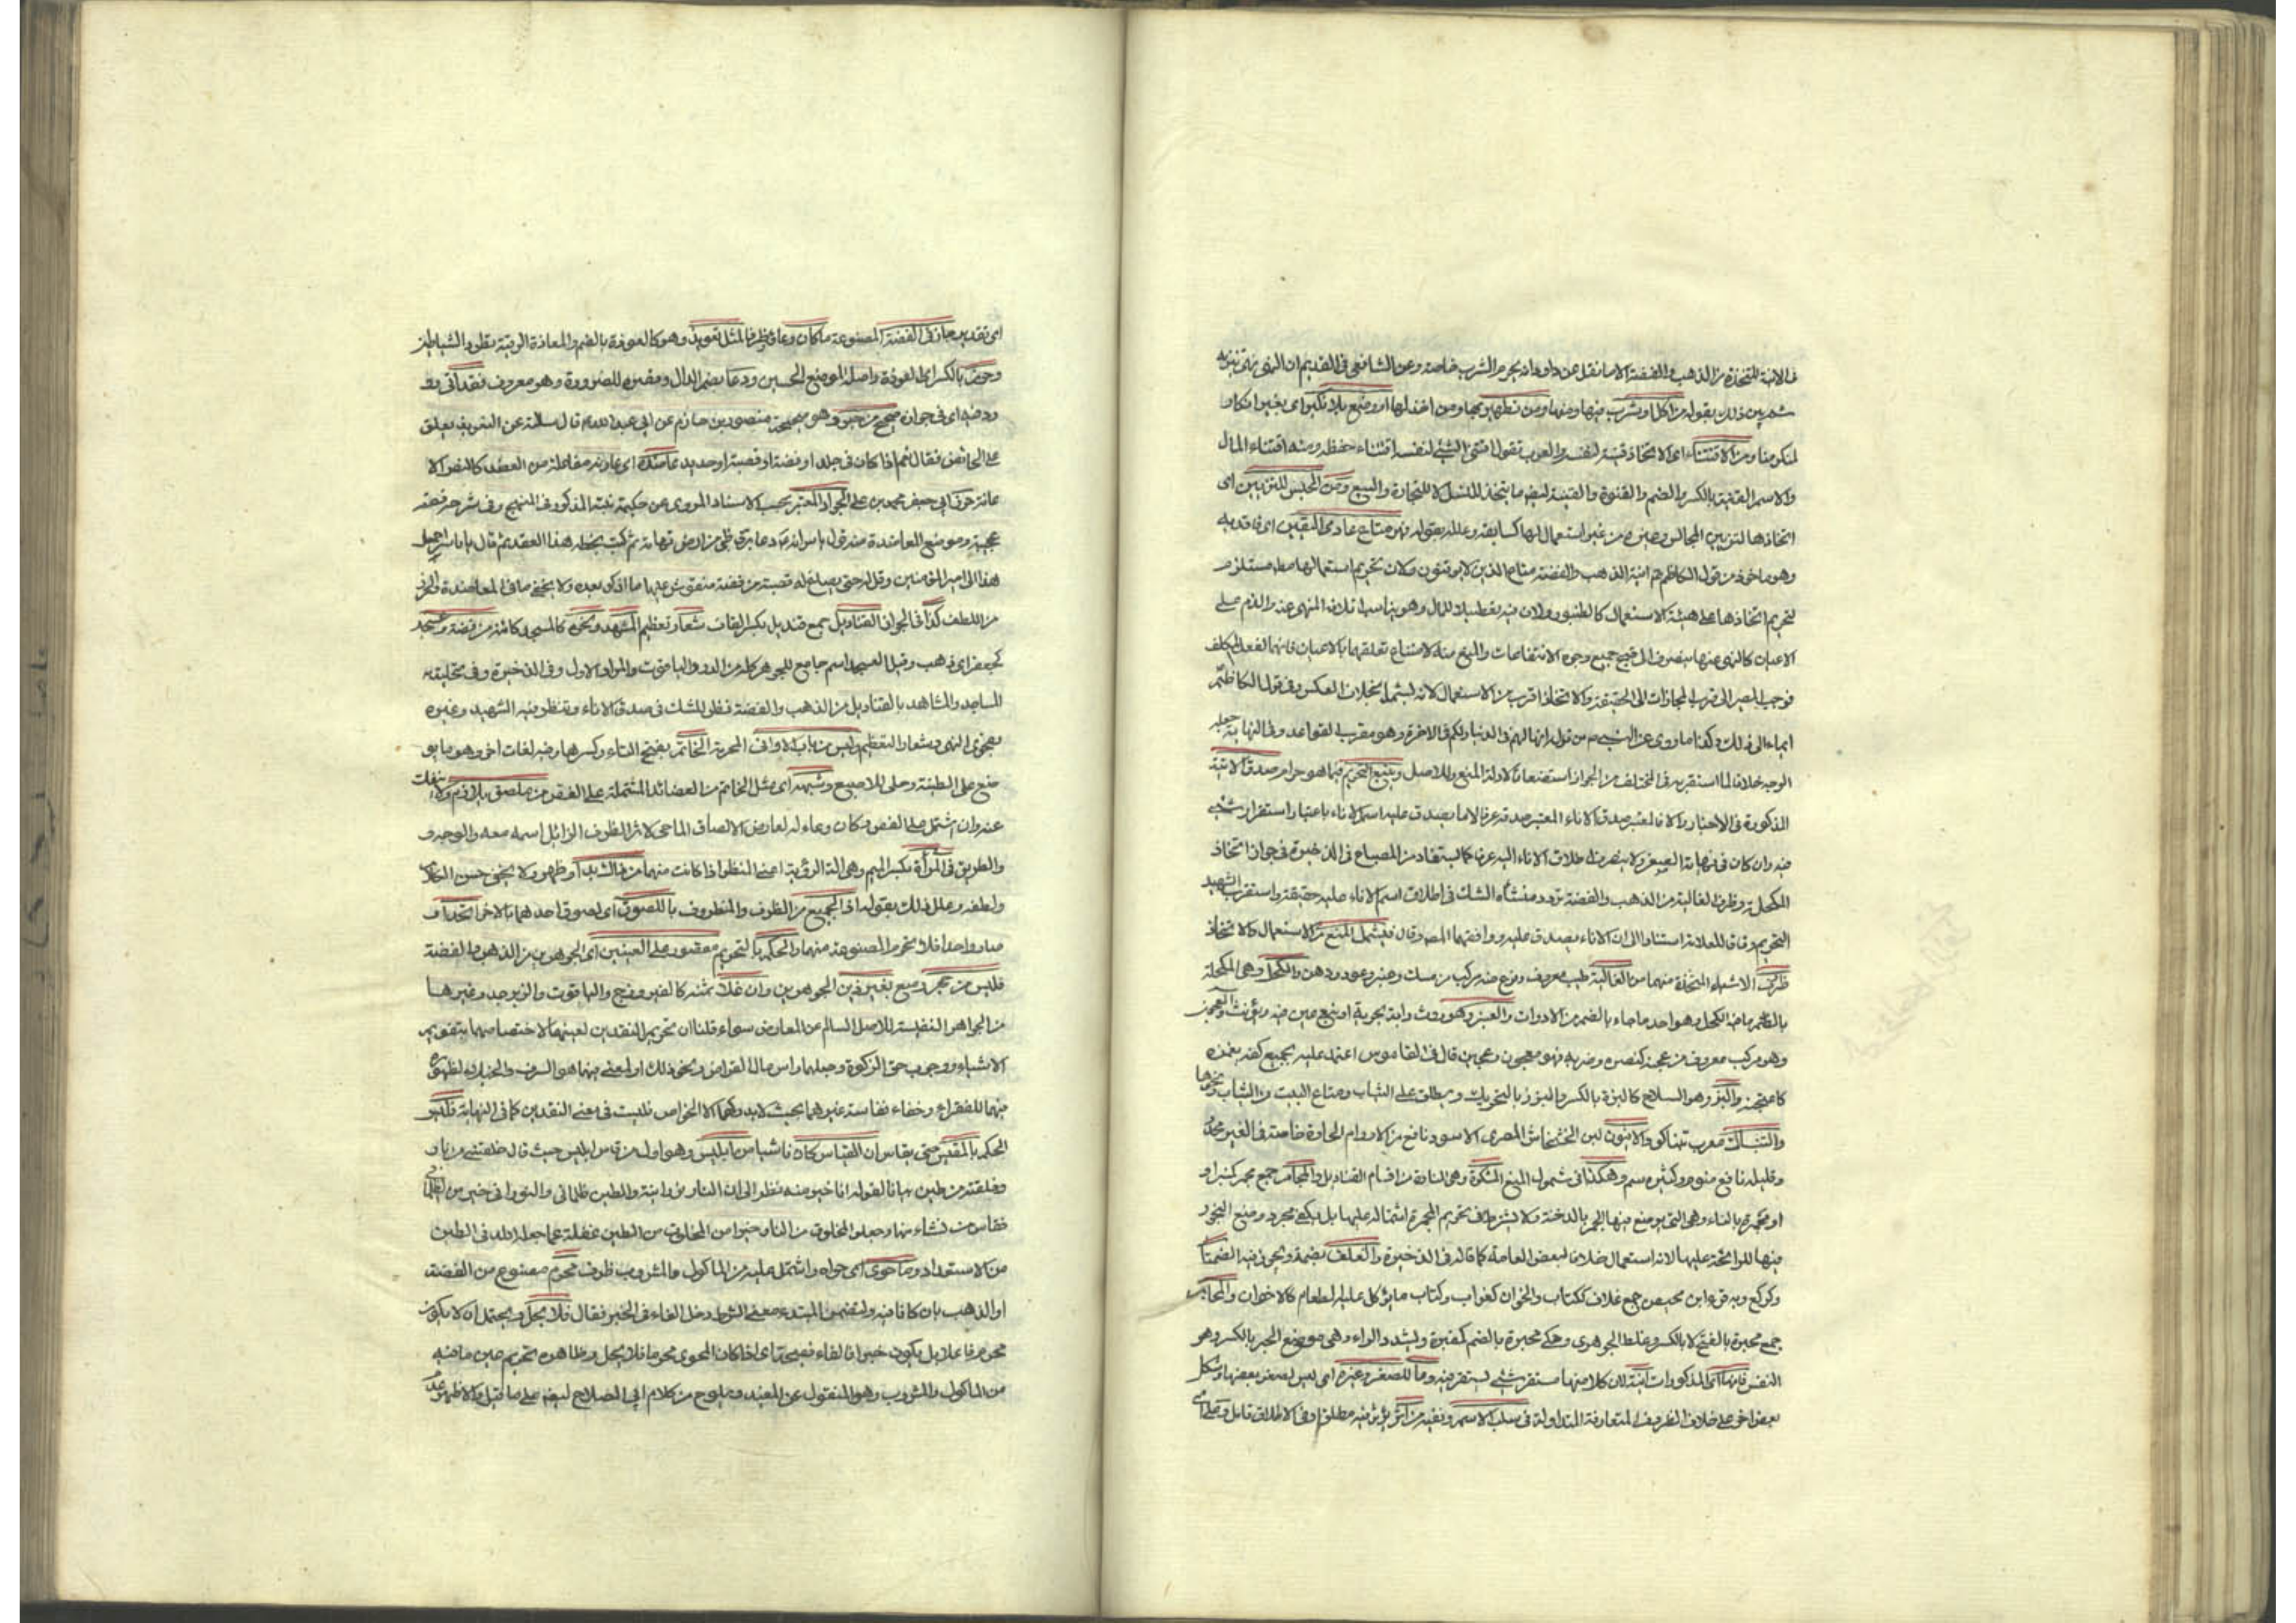 في الانية المتخذة من الذهب والفضة الا ما نقل عن داود انه يحرم الشرب خاصة وعن الشافعي في القديم ان النهي نهي تنزيه
ذلك بقوله من اكل وشرب فيها ومنها ومن تطهير بها ومن اخذ لها او وضع بلا نكير اي بغير انكار
لمنكر منا ومن الاقتناء اي الاتخاذ قنية لنفسه والعرب تقول اقتنى الشئ لنفسه اقتناء حفظه ومنه اقتناء المال
والاسم القنية بالكسر والضم والقنوة والقنية ايضا ما يتخذ للنسل لا للتجارة والبيع ومن الحبس للتزيين اي
اتخاذها لتزيين المجالس وغيره من غير استعمال لها كسابقه وعلله بقوله فهن متاع عادمي اليقين اي فاقديه
وهو ماخوذ من قول الكاظم انية الذهب والفضة متاع الذين لا يوقنون وكان تحريم استعمالها مط مستلزم
لتحريم اتخاذها على هيئة الاستعمال كالطنبور ولان فيه تعطيلا للمال وهو يناسب اتلاف المنهي عنه والذم على
الاعيان كالنهي عنها ينصرف الى قبيح جميع وجوه الانتفاعات والمنع منه لامتناع تعلقهما بالاعيان فانهما لفعل المكلف
فوجب المصير الى قرب المجازات الى الحقيقة والاتخاذ اقرب من الاستعمال لانه يشمله بخلاف العكس وفي قول الكاظم
ايماء الى ذلك وكذا ما روي عن النبي ص من قوله انها لهم في الدنيا ولكم في الاخرة وهو مقرب لقواعد وفي النهاية جعله
الوجه خلافا لما استقربه في المختلف من الجواز استضعافا لادلة المنع وللاصل ويتبع التحريم فيما هو حرام صدق الانية
المذكورة في الاخبار والانا لمعتبر صدق الاناء المعتبر صدقه عرفا لا ما يصدق عليه اسم الاناء باعتبار استقرار شئ
فيه وان كان في نهاية الصغر ولا ينصرف اطلاق الاناء اليه عرفا كما يستفاد من المصباح في الذخيرة في جواز اتخاذ
المكحلة وظرف الغالية من الذهب والفضة تردد منشأه الشك في اطلاق اسم الاناء عليه حقيقة واستقرب الشهيد
التحريم وفاقا للعلامة استنادا الى ان الاناء يصدق عليه ووافقهما المص وقال فيشمل المنع من الاستعمال والاتخاذ
ظرف الاشياء المتخذة منهما من الغالية طيب معروف ونوع منه مركب من مسك وعنبر وعود ودهن والكحل وهي المكحلة
بالضم ما فيه الكحل وهو احد ما جاء بالضم من الادوات والعنبر وهو روث دابة بحرية او نبع عين فيه ويؤنث والمعجون
وهو مركب معروف من عجنه كنصره وضربه فهو معجون وعجين قال في القاموس اعتمد عليه بجميع كفه يغمزه
كاعتجنه والبز وهو السلاح كالبزة بالكسر والبزز بالتحريك ويطلق على الثياب ومتاع البيت من الثياب ونحوها
والتنباك معرب تنباكو والافيون لبن الخشخاش المصري الاسود نافع من الاورام الحارة خاصة في العين مخدر
وقليله نافع منوم وكثيره سم وهكذا في شمول المنع المشكوة وهي النادة من اقسام القناديل والمجامر جمع مجمر كمنبر او
او مجمرة بالتاء وهي التي يوضع فيها الجمر بالدخنة ولا يشترط في تحريم المجمرة اشتماله عليها بل يكفي مجرد وضع البخور
فيها للرائحة عليها لانه استعمال خلافا لبعض العامة كما قاله في الذخيرة والغلف بضمة ويجوز فيه الضمتان
وكركع وبه قرء ابن محيصن جمع غلاف ككتاب والخوان كغراب وكتاب ما يؤكل عليه الطعام كالاخوان والمحابر
جمع محبرة بالفتح لا بالكسر وغلط الجوهري وحكى محبرة بالضم كمقبرة وتشدد الراء وهي موضع الحبر بالكسر وهو
النقس فانها اي المذكورات انية لان كلا منها مستقر شئ يستقر فيه وما للصغر وغيره اي ليس لصغر بعضها وشكل
بعض اخر على خلاف الظروف المتعارفة المتداولة في سلب الاسم ونفيه من اثر يؤثر فيه مطلقا وفي الاطلاق تامل وعلى اي
اي تقدير جاز في الفضة المصنوعة ما كان وعاء وظرفا لمثل تعويذ وهو كالعوذة بالضم والمعاذة الرقية يطرد الشياطين
وحرز بالكسر اي العوذة واصله الموضع الحصين ودعا بضم الدال وقصره للضرورة وهو معروف فقد اتى وقد
ورد فيه اي في جوازه صحيح من خبر وهو صحيحة منصور بن حازم عن ابي عبد الله قال سالته عن التعويذ يعلق
على الحائض فقال نعم اذا كان في جلد او فضة او قصبة او حديد عاضده اي عاونه مفاعلة من العضد كالنصر الا
عانة حرز ابي جعفر محمد بن علي الجواد المعتبر بحسب الاسناد المروي عن حكيمة بنته المذكور في المنهج وفي شرحه قصة
عجيبة وموضع المعاضدة منه قول ياسر انه ع دعا برق ظبي من ارض تهامة ثم كتب بخطه هذا العقد ثم قال يا ياسر احمل
هذا الى امير المؤمنين وقل له حتى يصاغ له قصبة من فضة منقوش عليها ما اذكر بعده ولا يخفى ما في المعاضدة والحرز
من اللطف كذا في الجواز القناديل جمع قنديل بكسر القاف شعار تعظيم المشهد ونحوه كالمسجد كائنة من فضة وعسجد
كجعفر اي ذهب وقيل العسجد اسم جامع للجوهر كله من الدر والياقوت والمراد الاول وفي الذخيرة وفي تحلية
المساجد والمشاهد بالقناديل من الذهب والفضة نظر للشك في صدق الاناء وتنظر فيه الشهيد وغيره
بفحوى النهي وشعار التعظيم وليس من باب الاواني المحرمة الخاتم بفتح التاء وكسرها وفيه لغات اخر وهو ما يو
ضع على الطينة وحلي للاصبع وشبهه اي مثل الخاتم من العضائد المشتملة على الفص من ملصق يلازم ولا ينفك
عنه وان اشتمل على الفص وكان وعاء له لعارض الالصاق الماحي لاثر الظرف الزائل اسمه معه والوجه و
والطريق في المرأة بكسر الميم وهي الة الرؤية اعني المنظر اذا كانت منهما من ذا الشبه او ظهر ولا يخفى حسن المحاذات
ولطفه وعلل ذلك بقوله اذ الجميع من الظرف والمظروف باللصوق اي لصوق احدهما بالاخر اتحد اي
صار واحدا فلا تحرم المصنوعة منهما والحكم بالتحريم مقصور على العينين اي الجوهرين من الذهب والفضة
فليس من حجر ومنع بغير ذين الجوهرين وان غلا ثمنه كالفيروزج والياقوت والزبرجد وغيرها
من الجواهر النفيسة للاصل السالم عن المعارض سواء قلنا ان تحريم النقدين لعينهما لاختصاصهما بتقويم
الاشياء ووجوب حق الزكوة وجعلهما راس مال القراض ونحو ذلك او لمعنى فيهما هو السرف والخيلاء لظهوره
فيهما للفقراء وخفاء نفاسة غيرهما بحيث لا يدركها الا الخواص فليست في معنى النقدين كما في النهاية فليس
الحكم بالمقيس حتى يقاس ان القياس كان ناشيا من ابليس وهو اول من قاس ابليس حيث قال خلقتني من نار و
وخلقته من طين بيانا لقوله انا خير منه نظرا الى ان النار نورانية والطين ظلماني والنوراني خير من الظلماني
فقاس من نشاء منها وجعل المخلوق من النار خيرا من المخلوق من الطين غفلة عما جعله الله في الطين
من الاستعداد وما حوى اي حواه واشتمل عليه من الماكول والمشروب ظرف محرم مصنوع من الفضة
او الذهب بان كانا فيه ولتضمن المبتدء معنى الشرط دخل الفاء في الخبر فقال فلا يحل ويحتمل ان لا يكون
محرم فاعلا بل يكون خبرا فالفاء فصيحة اي اذا كان المحوي محرما فلا يحل وظاهره تحريم عين ما فيه
من الماكول والمشروب وهو المنقول عن المفيد ويلوح من كلام ابي الصلاح ايضا على ما قيل والاظهر عدم